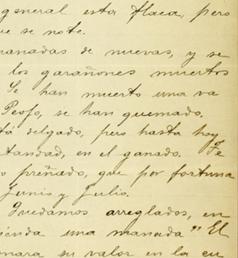 general esta flaca, pero
ue se note.
ranadas de nuevas, y se
los garañones muertos
Se han muerto una va
Peofo, se han quemado.
tá delgado, pero hasta hoy
tandad, en el ganado. Fe
o preñado, que por fortuna
Junio y Julio.
Quedamos arreglados, en
ienda una manada "El
mara su valor en la cu